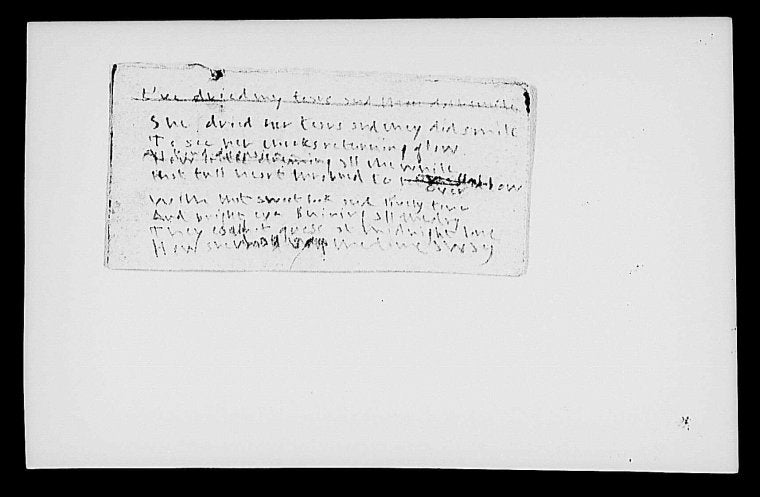 I've dried my tears and then did smile
She dried her tears and they did smile
To see her cheeks returning glow
How little dreaming all the while
That full heart throbbed to over flow
With that sweet look and lively tone
And bright eye shining all the day
They could not guess at midnight lone
How she would weep the time away